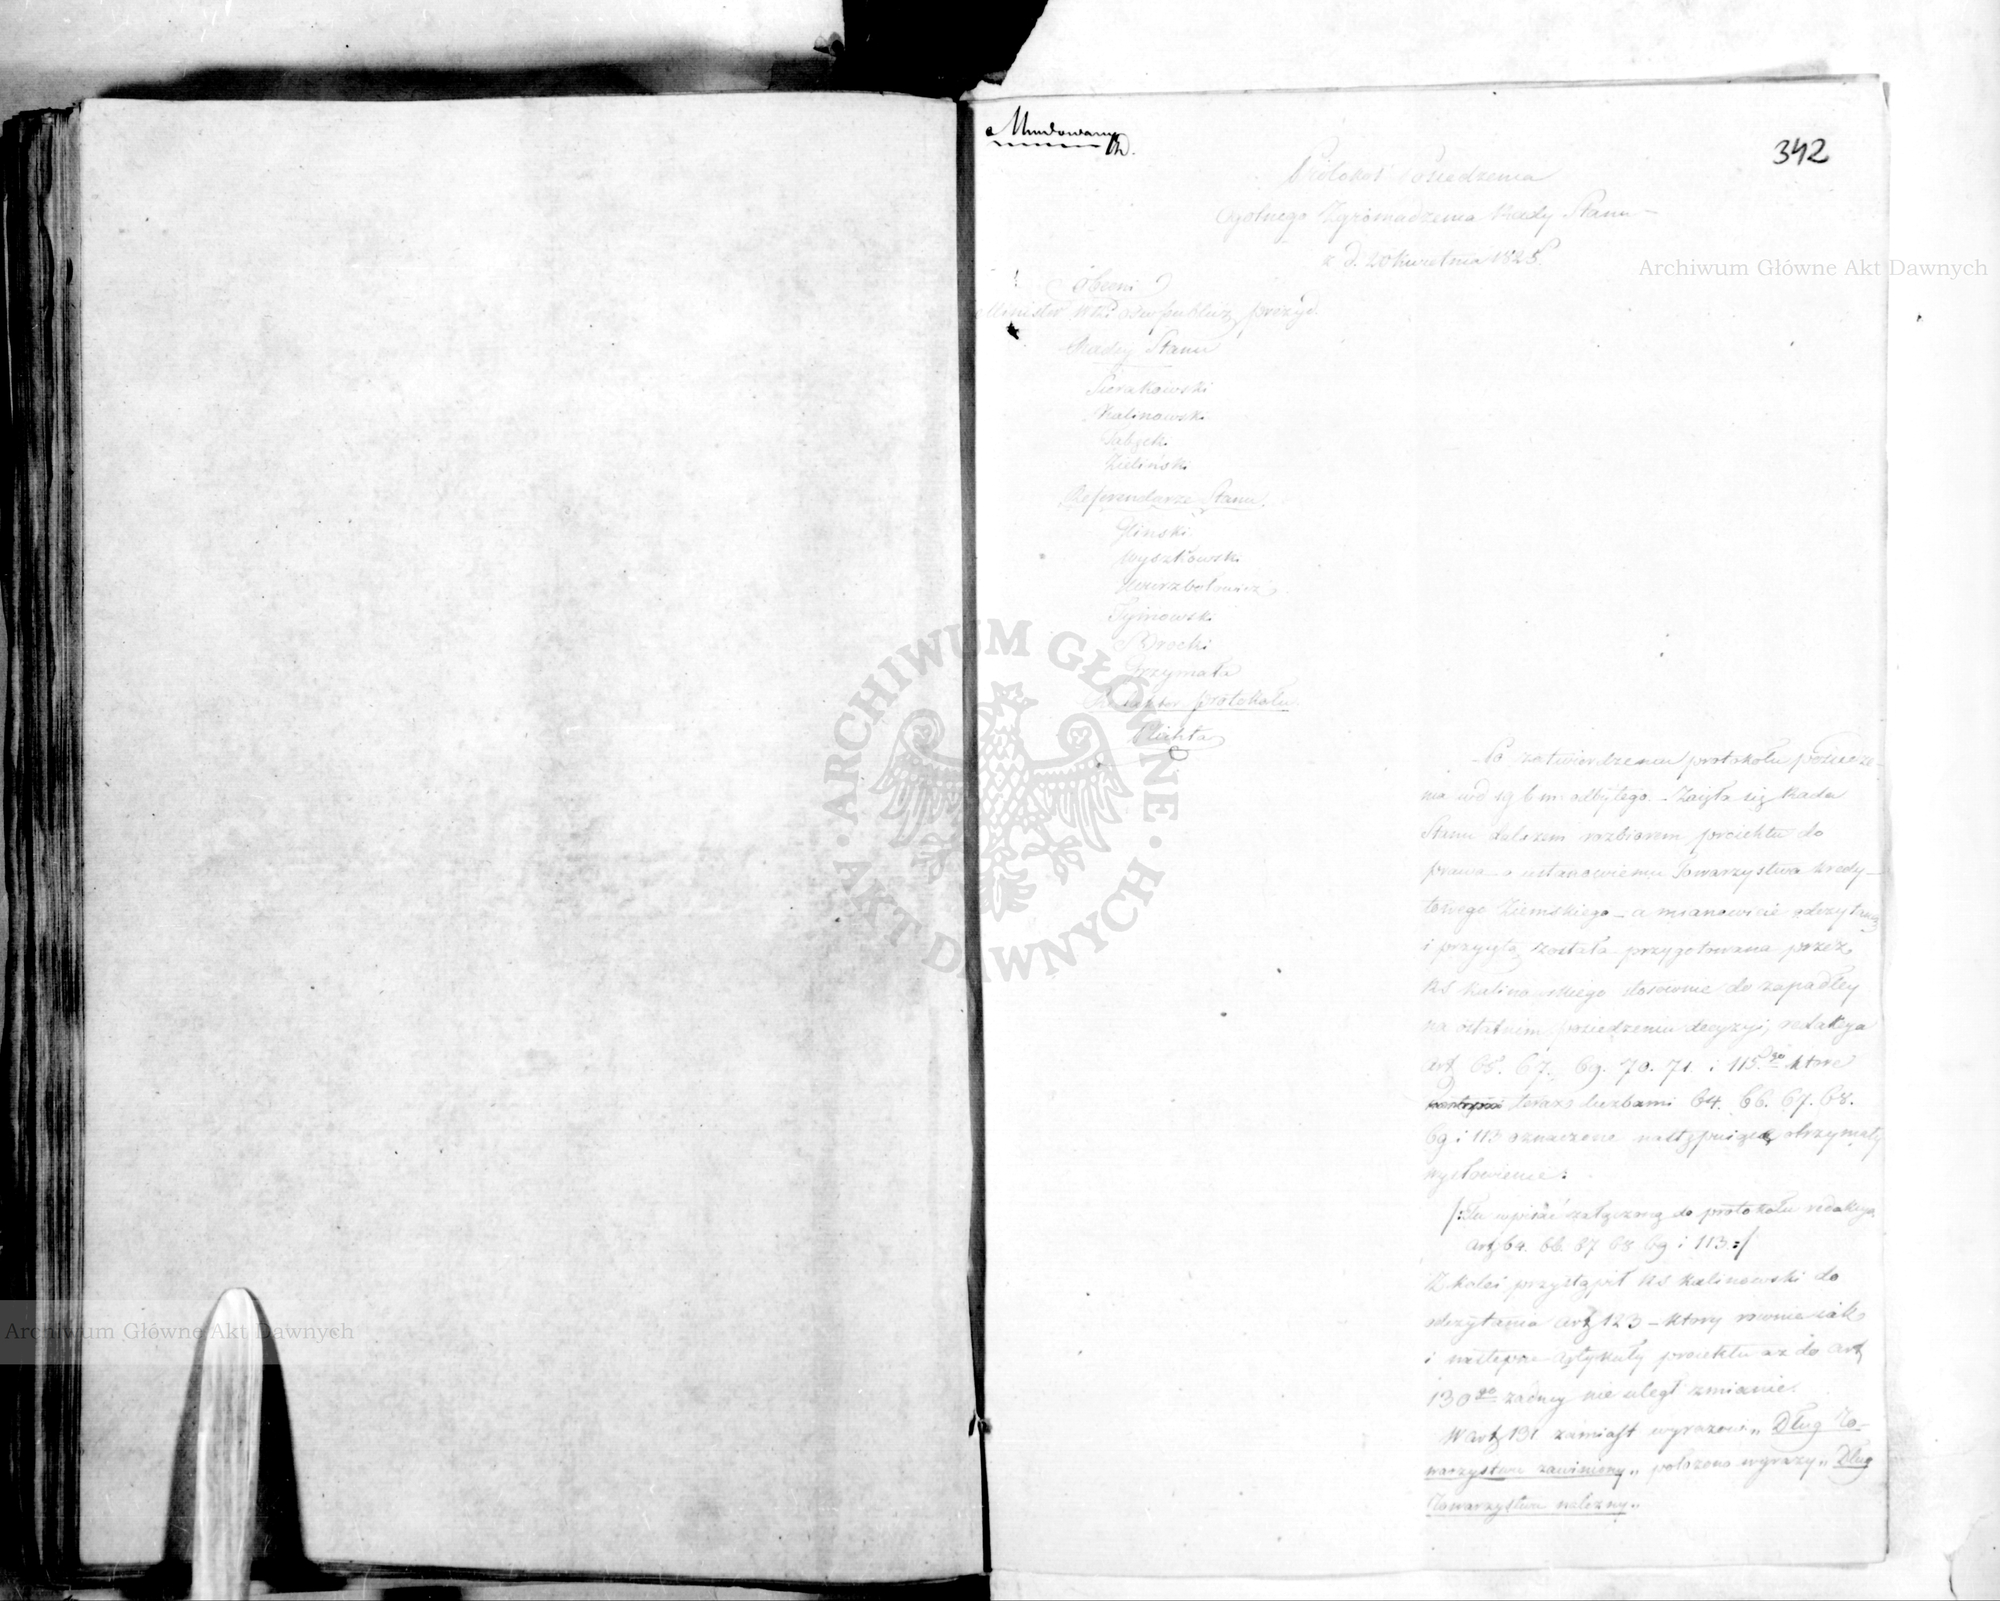 Mundowany
342
Protokół Posiedzenia
Ogólnego Zgromadzenia Rady Stanu
z d. 20 Kwietnia 1825.
Archiwum Główne Akt Dawnych
Obecni
Radcy Stanu
Sierakowski
Kalinowski
Zieliński
Referendarze Stanu
Gliński
Wyszkowski
Tymowski
Brocki
Grzymała
Redaktor protokołu
Plichta
ARCHIWUM GŁÓWNE
AKT DAWNYCH
Po zatwierdzeniu protokołu posiedze-
nia w d 19 b m odbytego – Zaięła się Rada
Stanu dalszem rozbiorem proiektu do
prawa o ustanowieniu Towarzystwa kredy-
towego Ziemskiego – a mianowicie odczytaną
i przyiętą została przygotowana przez
RS Kalinowskiego stosownie do zapadłey
na ostatnim posiedzeniu decyzyi, redakcya
art 65. 67. 69. 70. 71. i 115.go które
teraz liczbami 64. 66. 67. 68.
69 i 113 oznaczone następuiące otrzymały
wysłowienie:
/:Tu wpisać załączoną do protokołu redakcyą
art 64. 66. 67 68 69 i 113:/
Z kolei przystąpił RS Kalinowski do
odczytania art 123 – który równie iak
i następne artykuły proiektu aż do art
130go żadney nie uległ zmianie.
W art 131 zamiast wyrazów „Dług To-
warzystwu zawiniony„ położono wyrazy „Dług
Towarzystwu należny„
Archiwum Główne Akt Dawnych